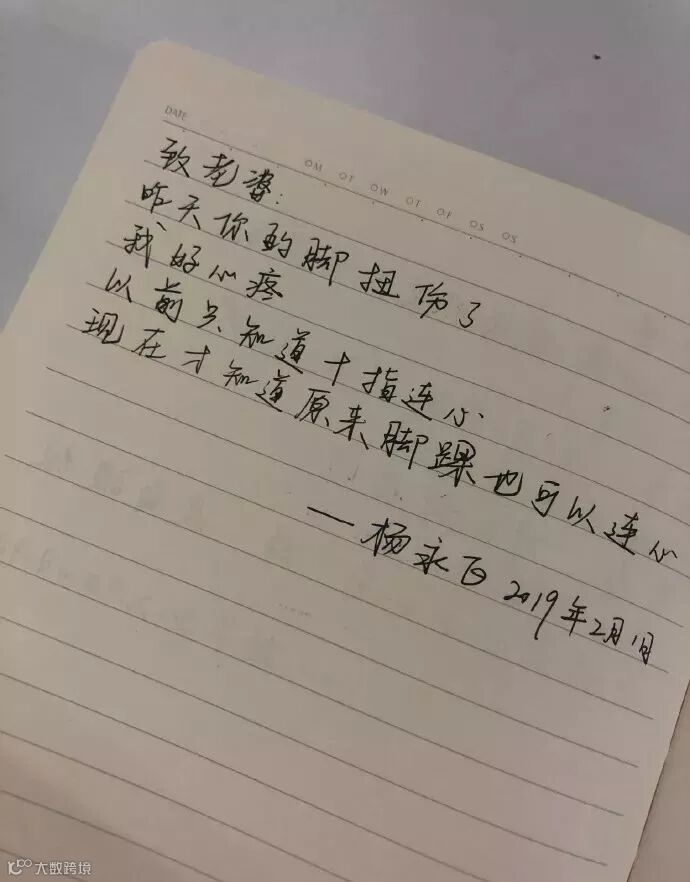 DATE
MO TO WO TO FO SO SO
致老婆:
昨天你的脚扭伤了
我好心疼
以前只知道十指连心
现在才知道原来脚踝也可以连心
——杨永 2019年2月1日
大数跨境